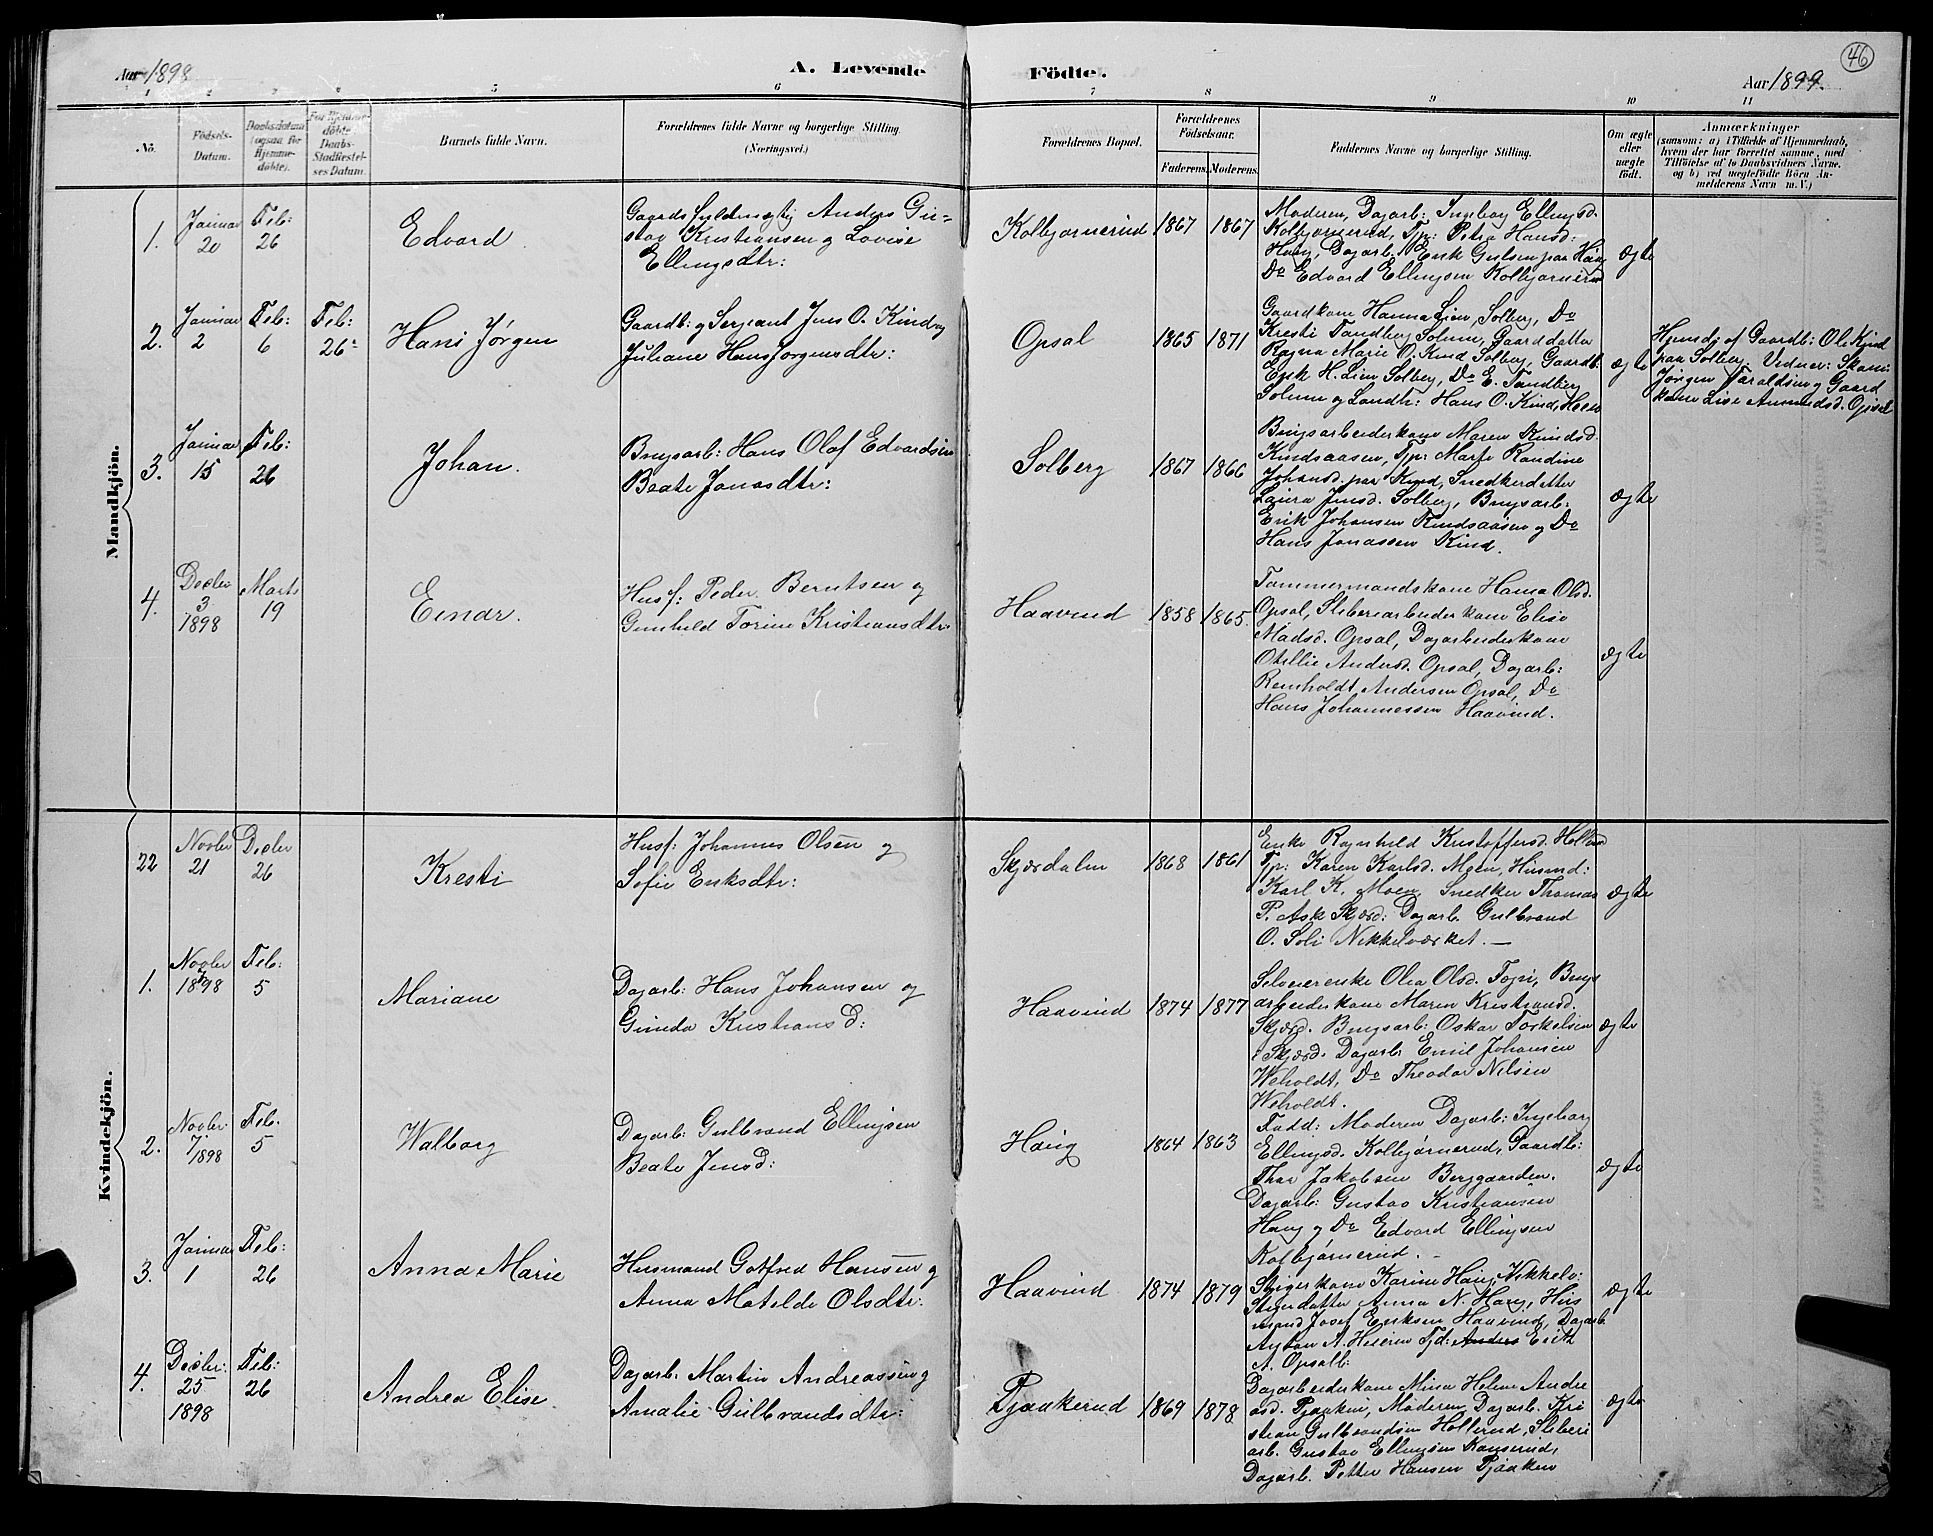 46
Aar 1898
A. Levende Födte.
Aar 1899.
1 2 3 4 5 6 7 8 9 10 11
No.
Födsels-
Datum.
Daabsdatum
(ogsaa for
Hjemme-
döbte).
For Hjemme-
döbte
Daabs-
Stadfæstel-
ses Datum.
Barnets fulde Navn.
Forældrenes fulde Navne og borgerlige Stilling
(Næringsvei.)
Forældrenes Bopæl.
Forældrenes
Födselsaar.
Faderens. Moderens.
Faddernes Navne og borgerlige Stilling.
Om ægte
eller
uægte
födt.
Anmærkninger
(saasom: a) i Tilfælde af Hjemmedaab,
hvem der har forrettet samme, med
Tilföielse af to Daabsvidners Navne.
og b) ved uægtefödte Börn An-
melderens Navn m. V.)
Mandkjön.
1.
Januar
20
Feb:
26
Edvard.
Gaardsfuldmægtig Anders Gu-
stav Kristiansen og Lovise
Ellingsdtr:
Kolbjørnerud
1867
1867
Moderen, Dagarb: Ingeborg Ellingsd.
Kolbjørnerud, Tp: Petra Hansd:
Haug, Dagarb. Erik Gulsen paa Haug
Do Edvard Ellingsen Kolbjørnerud
ægte
2.
Januar
2
Feb:
6
Feb:
26
Hans Jørgen
Gaardb: og Sergeant Jens O. Kind og
Juliane Hans Jørgensdtr:
Opsal
1865
1871
Gaardkone Hanna Lien, Solberg, Do
Kresti Tandberg Solum, Gaarddatter
Ragna Marie O. Kind Solberg, Gaardb:
Erik H. Lien Solberg, Do E. Tandberg
Solum og Landh: Hans O. Kind, Moen
ægte
Hjemdj af Gaardb: Ole Kind
paa Solberg. Vidner: Skom:
Jørgen Taraldsen og Gaard
kone Lise Amundsd. Opsal
3.
Januar
15
Feb:
26
Johan.
Brugsarb: Hans Olaf Edvardsen
Beate Jonasdtr:
Solberg
1867
1866
Brugsarbeiderkone Maren Knudsd.
Kindsaasen, Tp: Marte Randine
Johansd. paa Kind, Snedkerdatter
Laura Jensd. Solberg, Brugsarb:
Erik Johansen Kindsaasen og Do
Hans Jonassen Kind.
ægte
4.
Decbr
3
1898
Marts
19
Einar.
Husf: Peder Berntsen og
Gunhild Torine Kristiansdtr
Haavind
1858
1865.
Tømmermandskone Hanna Olsd.
Opsal, Sliberiarbeiderkone Elise
Madsd. Opsal, Dagarbeiderkone
Otellie Andersd. Opsal, Dagarb:
Reinholdt Andersen Opsal, Do
Hans Johannessen Haavind.
ægte
Kvindekjön.
22
Novbr
21
Decbr
26
Kresti
Husf: Johannes Olsen og
Sofie Eriksdtr:
Skjærdalen
1868
1861
Enke Ragnhild Kristoffersd.
Tp: Karen Karlsd. Moen, Husmd:
Karl K. Moen, Snedker Thomas
P. Ask Skjærd: Dagarb. Gulbrand
O. Soli Nikkelværket. —
ægte
1.
Novbr
1898
Feb:
5
Mariane
Dagarb: Hans Johansen og
Gunda Kristiansd:
Haavind
1874
1877
Selveierenke Olea Olsd. Togn, Brugs
arbeiderkone Maren Kristiansd.
Skjærd. Brugsarb: Oskar Torkelsen
i Skjærd. Dagarb Emil Johansen
Weholdt, Do Theodor Nilsen
Weholdt.
ægte
2.
Novbr:
7/1898
Feb.
5
Walborg
Dagarb: Gulbrand Ellingsen
Beate Jensd:
Haug
1864
1863
Fadd: Moderen Dagarb: Ingeborg
Ellingsd. Kolbjørnerud, Gaardb:
Thor Jakobsen Berggaarden.
Dagarb: Gustav Kristiansen
Haug og Do Edvard Ellingsen
Kolbjørnerud.
ægte
3.
Januar
1
Feb:
26
Anna Marie
Husmand Gotfred Hansen og
Anna Matilde Olsdtr:
Haavind
1874
1879
Stigerkone Karine Haug, Nikkelv:
Stigerdatter Anna N. Haug, Hus
mand Josef Eriksen Haavind, Dagarb.
Anton A. Hieren Tjd: Anders Erik
A. Opsal
ægte
4.
Decbr:
25
1898
Feb:
26
Andrea Elise.
Dagarb. Martin Andreassen og
Amalie Gulbrandsdtr:
Pjaakerud
1869
1878
Dagarbeiderkone Mina Helene Andre
asd. Pjaaken, Moderen, Dagarb. Kri
stian Gulbrandsen Hollerud, Sliberi
arb. Gustav Ellingsen Kanserud,
Dagarb. Petter Hansen Pjaaken
ægte